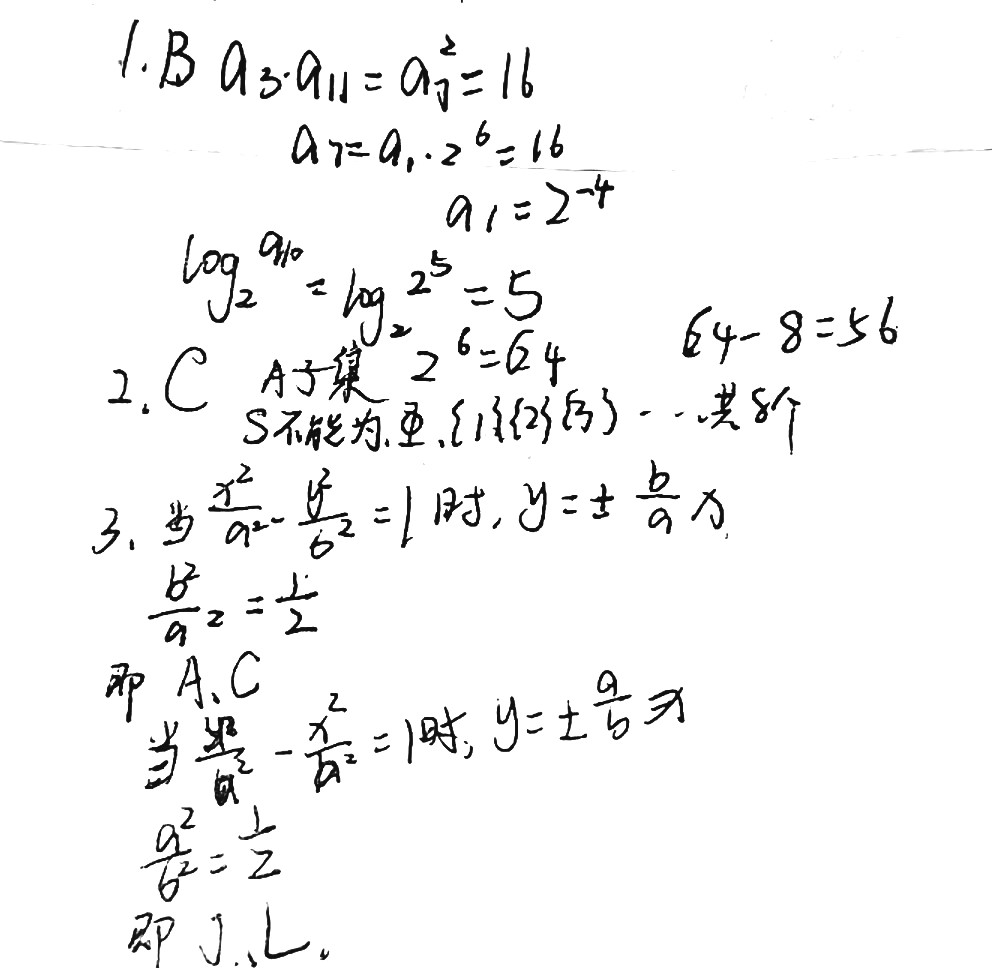 1. B a₃·a₁₁ = a₇² = 16
a₇ = a₁·2⁶ = 16
a₁ = 2⁻⁴
log₂^a₁₀ = log₂ 2⁵ = 5
2. C A子集 2⁶ = 64 64 - 8 = 56
S不能为 {1}{2}{3} ··· 共8个
3. 当 x²/a² - y²/b² = 1 时, y = ± b/a x
b²/a² = 1/2
即 A、C
当 y²/a² - x²/b² = 1时, y = ± a/b x
a²/b² = 1/2
即 J、L.